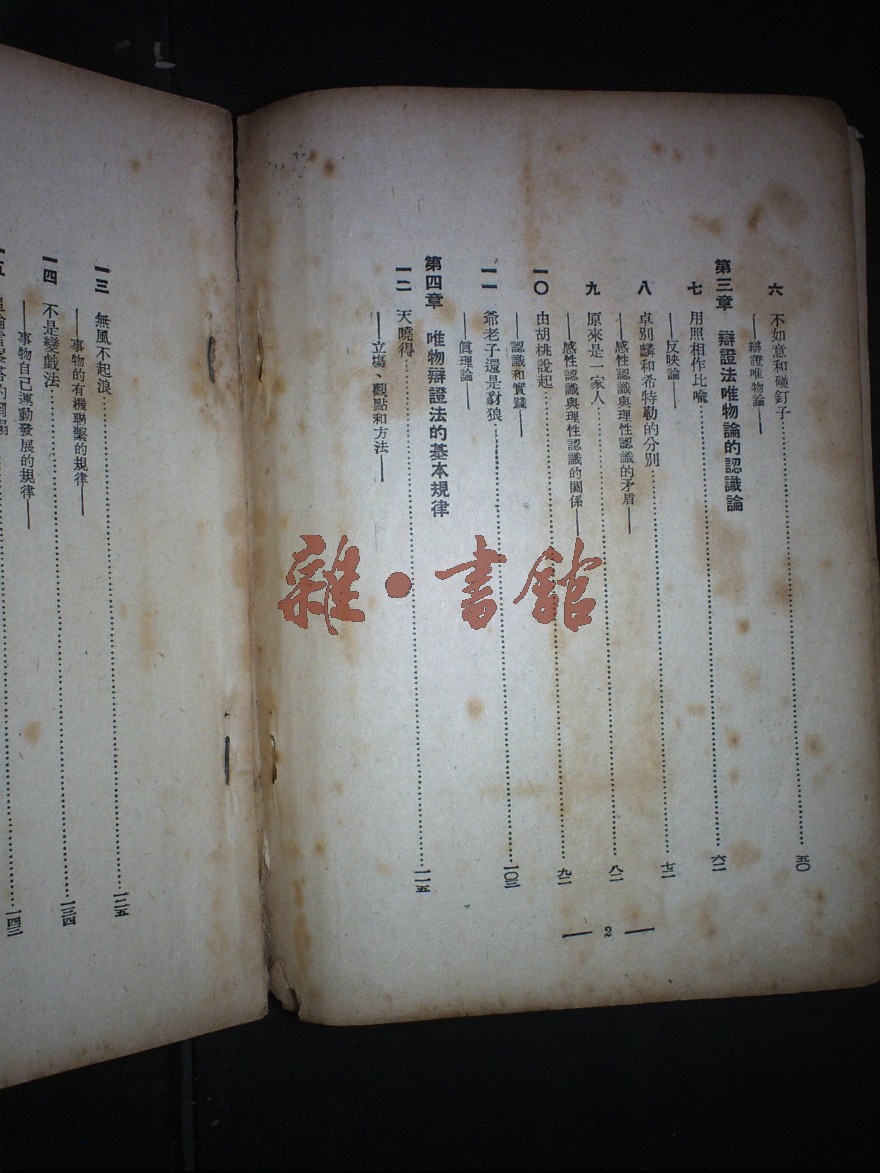 六 不如意和碰釘子……五〇
——辯證唯物論——
第三章 辯證法唯物論的認識論
七 用照相作比喩……六二
——反映論——
八 卓別麟和希特勒的分別……七二
——感性認識與理性認識的矛盾——
九 原來是一家人……八二
——感性認識與理性認識的關係——
一〇 由胡桃說起……九二
——認識和實踐——
一一 爺老子還是豺狼……一〇三
——眞理論——
第四章 唯物辯證法的基本規律
一二 天曉得……一一五
——立塲、觀點和方法——
— 2 —
一三 無風不起浪……一二五
——事物的有機聯繫的規律——
一四 不是變戲法……一三四
——事物自己運動發展的規律——
一五……一四三
雜·書館